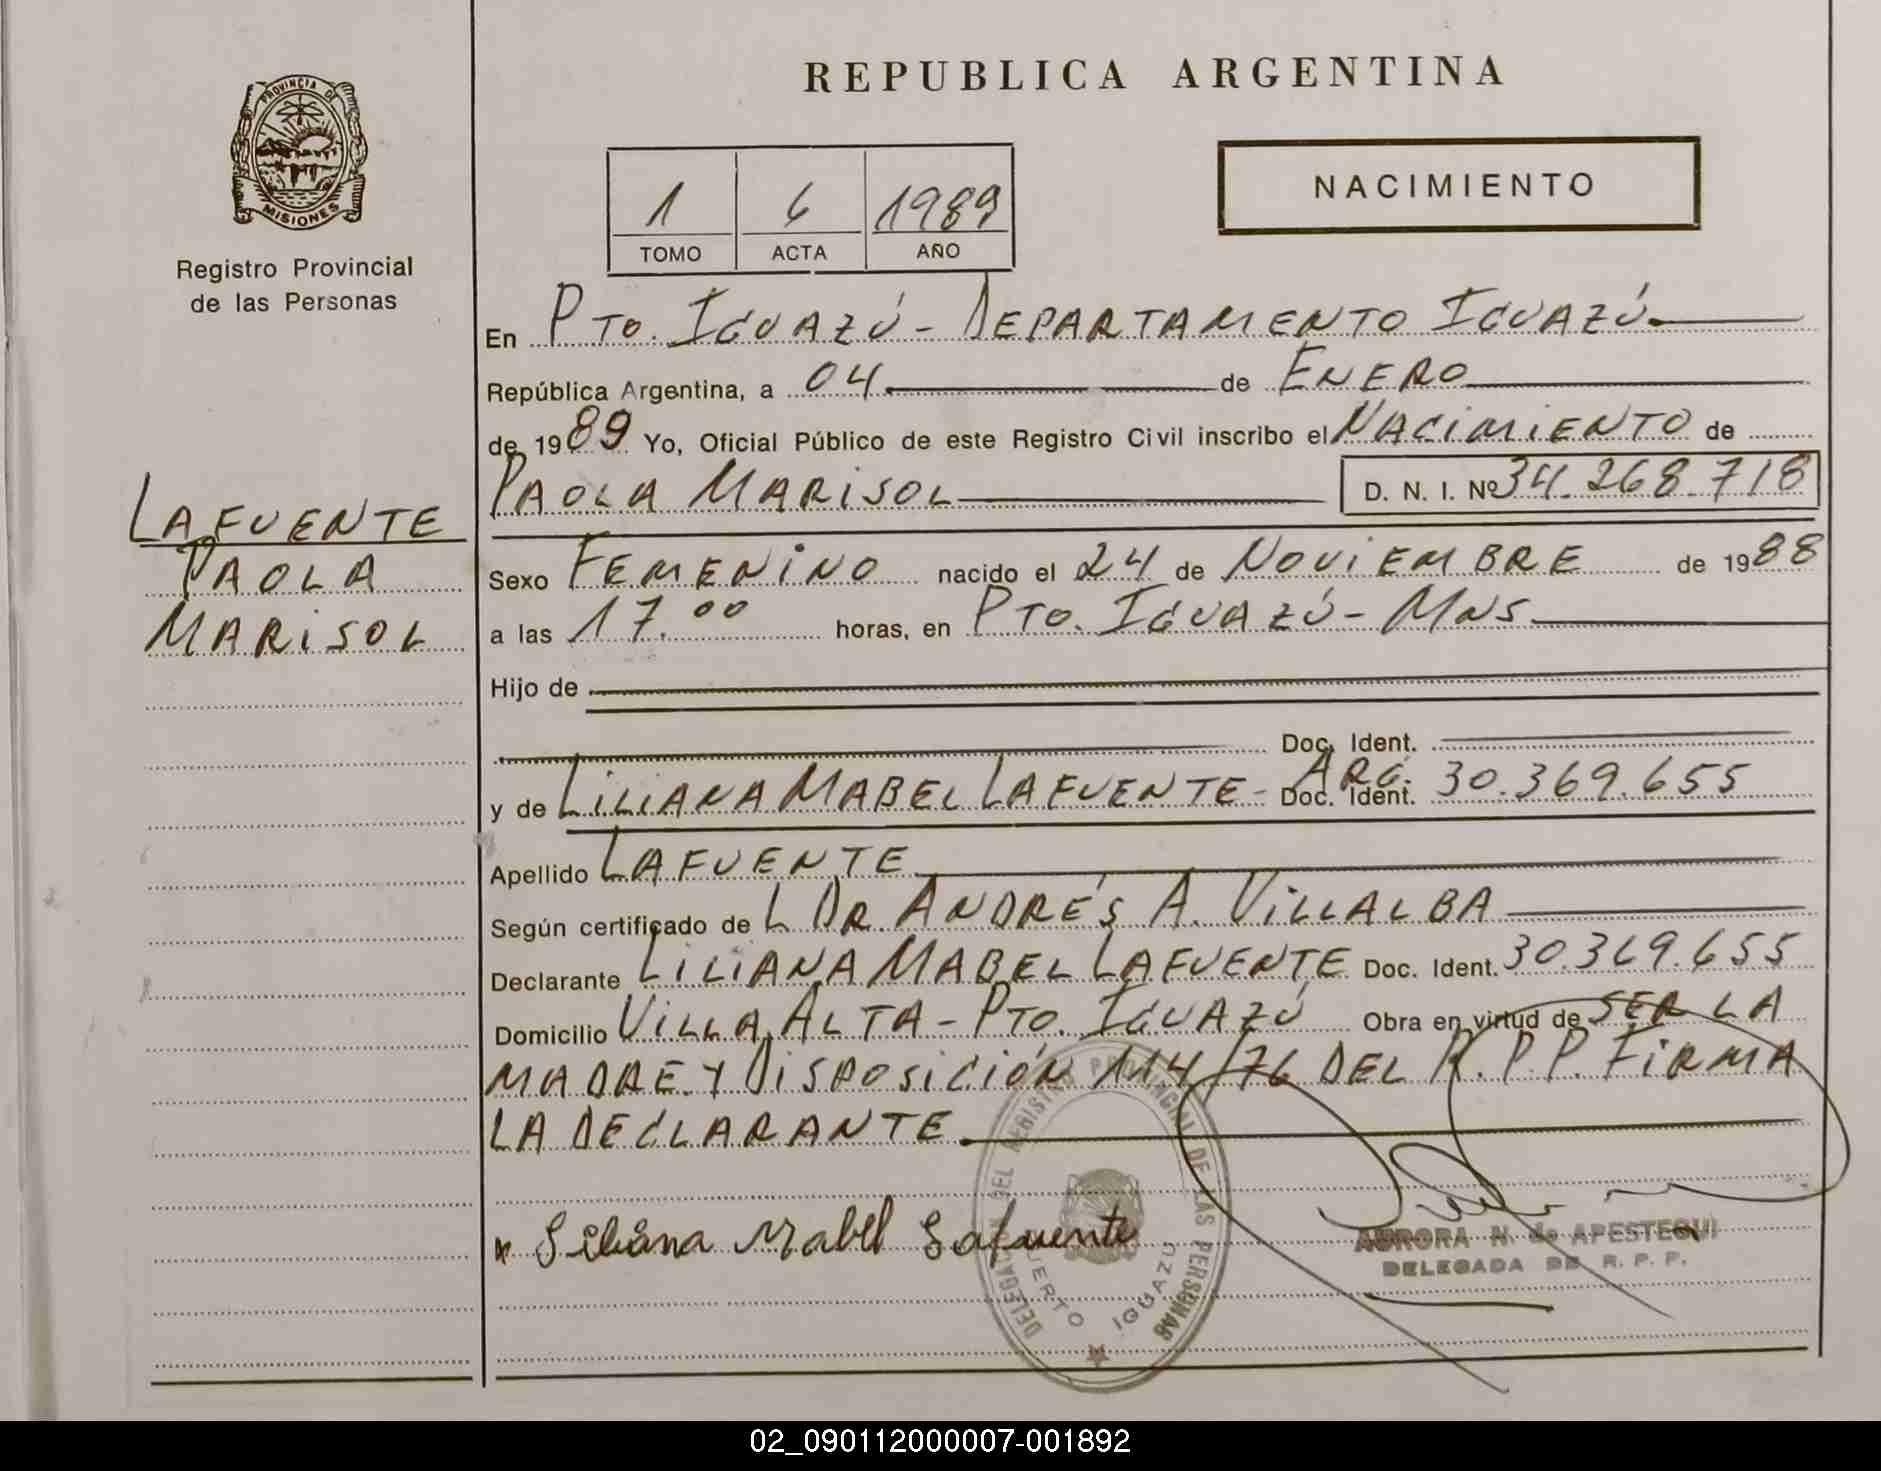 PROVINCIA DE
MISIONES
Registro Provincial
de las Personas
LAFUENTE
PAOLA
MARISOL
REPUBLICA ARGENTINA
1 6 1989
TOMO ACTA AÑO
NACIMIENTO
En PTO. IGUAZÚ - DEPARTAMENTO IGUAZÚ
República Argentina, a 04 de ENERO
de 1989 Yo, Oficial Público de este Registro Civil inscribo el NACIMIENTO de
PAOLA MARISOL D. N. I. Nº 34.268.718
Sexo FEMENINO nacido el 24 de NOVIEMBRE de 1988
a las 17.00 horas, en PTO. IGUAZÚ - MNS
Hijo de
Doc. Ident.
y de LILIANA MABEL LAFUENTE - Doc. Ident. ARG. 30.369.655
Apellido LAFUENTE
Según certificado de L DR. ANDRÉS A. VILLALBA
Declarante LILIANA MABEL LAFUENTE Doc. Ident. 30.369.655
Domicilio VILLA ALTA - PTO. IGUAZÚ Obra en virtud de SER LA
MADRE Y DISPOSICIÓN 114/76 DEL R.P.P. FIRMA
LA DECLARANTE.
Liliana Mabel Lafuente
DELEGACION DEL REGISTRO PROVINCIAL DE LAS PERSONAS
PUERTO IGUAZU
AURORA N. de APESTEGUI
DELEGADA DE R. P. P.
02_090112000007-001892